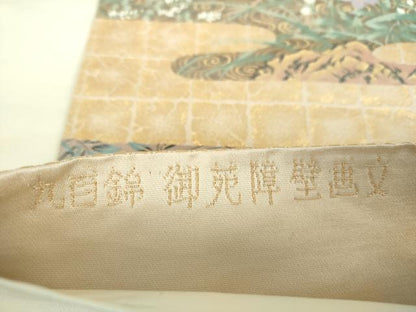 九百錦 御苑障壁画文